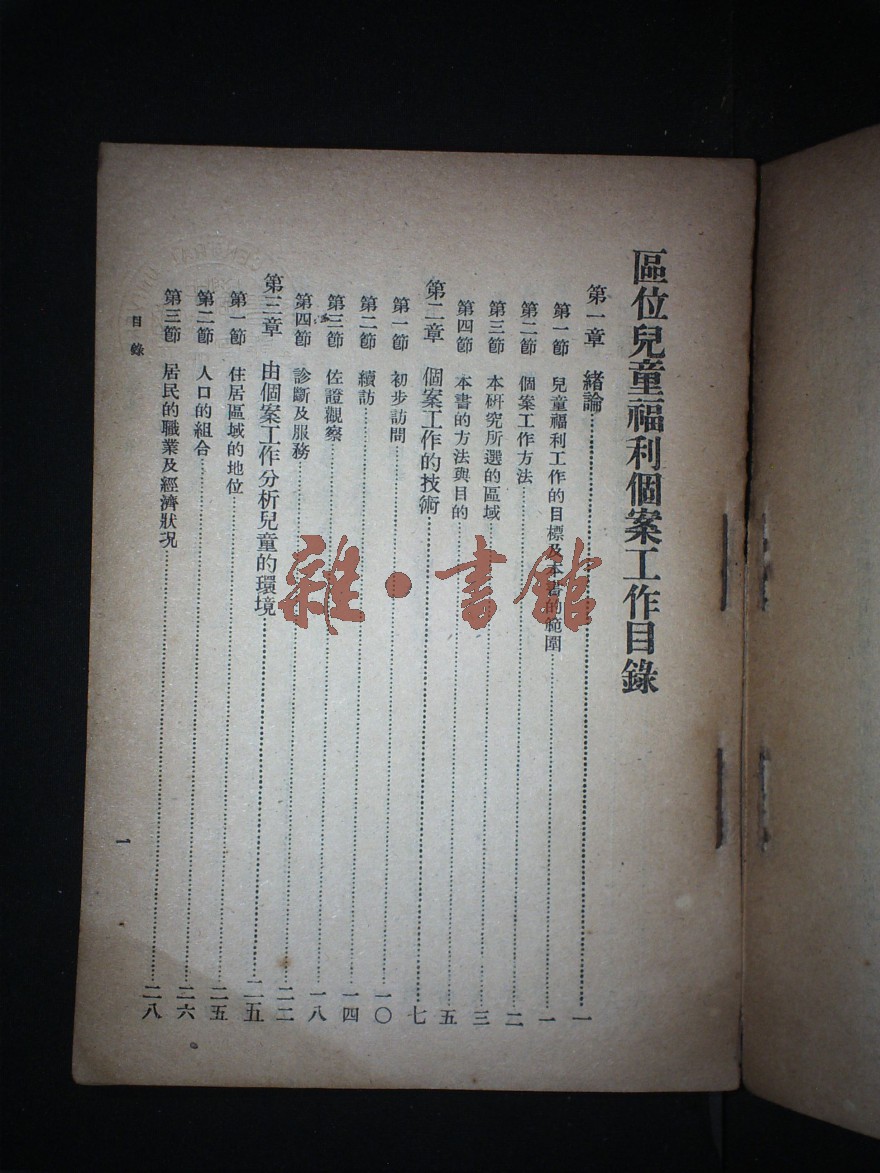 區位兒童福利個案工作目錄
第一章 緒論……一
第一節 兒童福利工作的目標及本書的範圍……一
第二節 個案工作方法……二
第三節 本研究所選的區域……三
第四節 本書的方法與目的……五
第二章 個案工作的技術……七
第一節 初步訪問……一〇
第二節 續訪……一四
第三節 佐證觀察……一八
第四節 診斷及服務……二二
第三章 由個案工作分析兒童的環境……二五
第一節 住居區域的地位……二五
第二節 人口的組合……二六
第三節 居民的職業及經濟狀況……二八
目錄
一
雜·書館